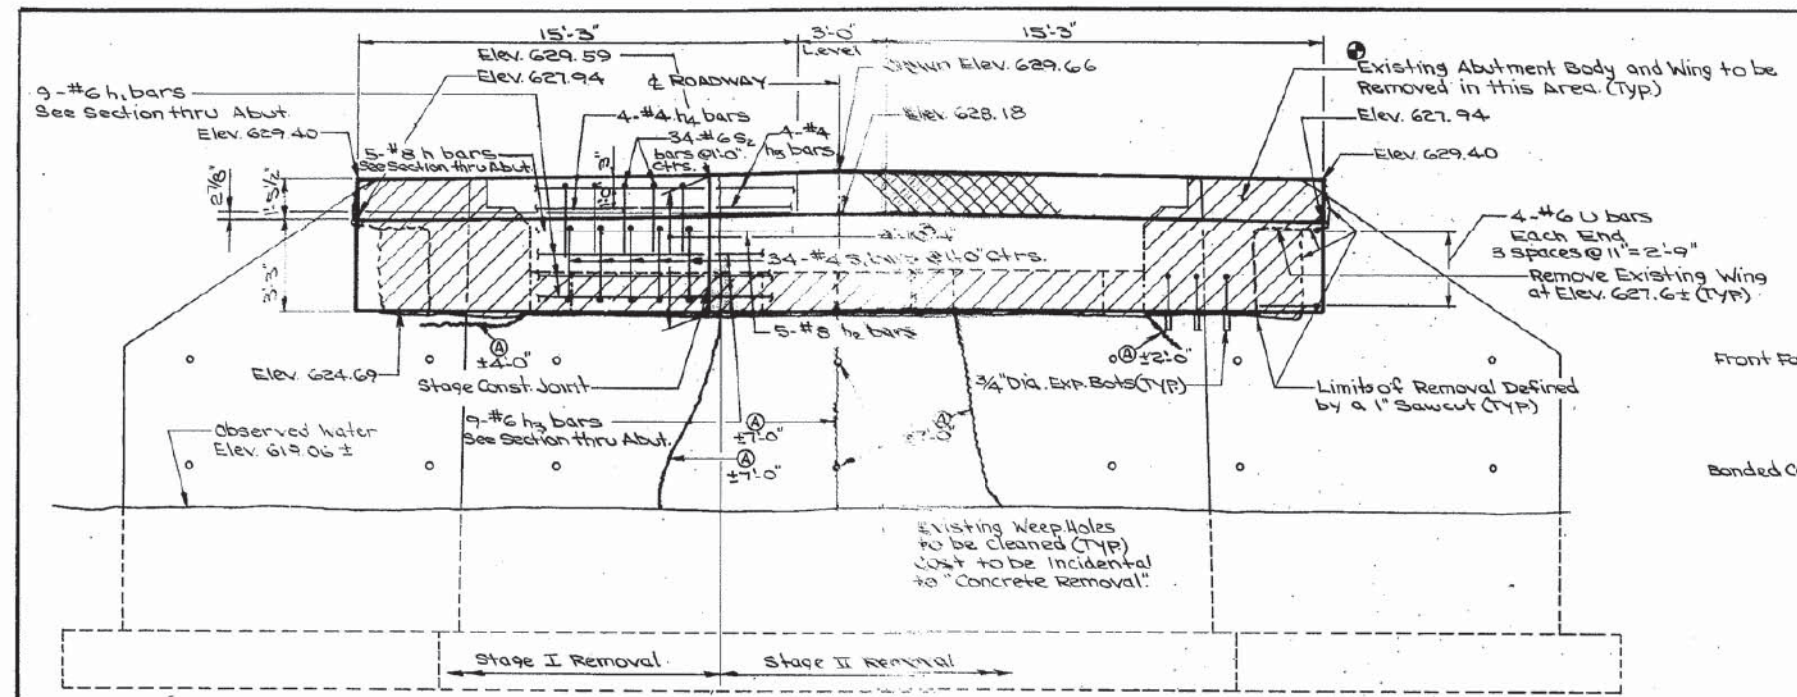 15'-3"
3'-0"
Level
15'-3"
Elev. 629.59
Elev. 627.94
℄ ROADWAY
Elev. 629.66
Existing Abutment Body and Wing to be
Removed in this Area. (Typ.)
9-#6 h, bars
See Section thru Abut.
Elev. 629.40
4-#4 h4 bars
34-#6 S2
bars @1'-0"
Ctrs.
4-#4
h5 bars
Elev. 628.18
Elev. 627.94
Elev. 629.40
5-#8 h bars
See Section thru Abut.
2⅞"
1'-5½"
3'-3"
34-#4 S, @1'-0" Ctrs.
4-#6 U bars
Each End
3 spaces @ 11" = 2'-9"
Remove Existing Wing
at Elev. 627.6± (Typ.)
5-#8 h2 bars
A
±4'-0"
Elev. 624.69
Stage Const. Joint
A ±2'-0"
¾" Dia. Exp. Bots (Typ.)
Limits of Removal Defined
by a 1" Sawcut (Typ.)
Front
9-#6 h3 bars
See Section thru Abut.
A
±7'-0"
A
±7'-0"
A
Observed Water
Elev. 619.06 ±
Bonded
Existing Weep Holes
to be Cleaned (Typ.)
Cost to be Incidental
to "Concrete Removal".
Stage I Removal
Stage II Removal